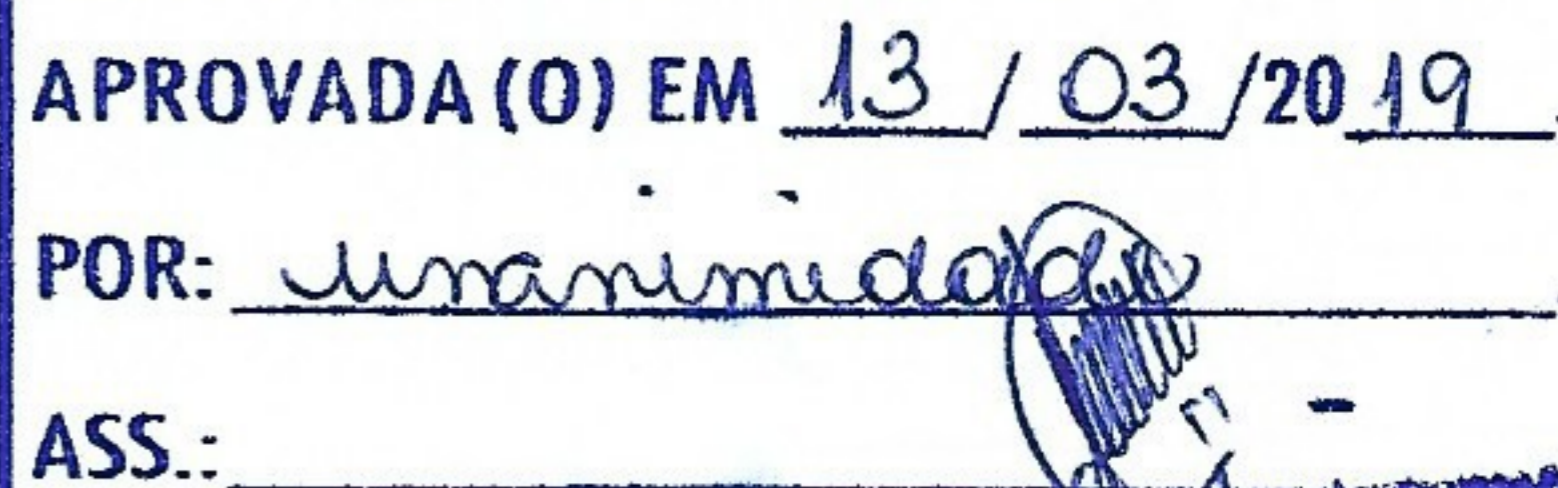 APROVADA(O) EM 13 / 03 /2019.
POR: unanimidade.
ASS.: